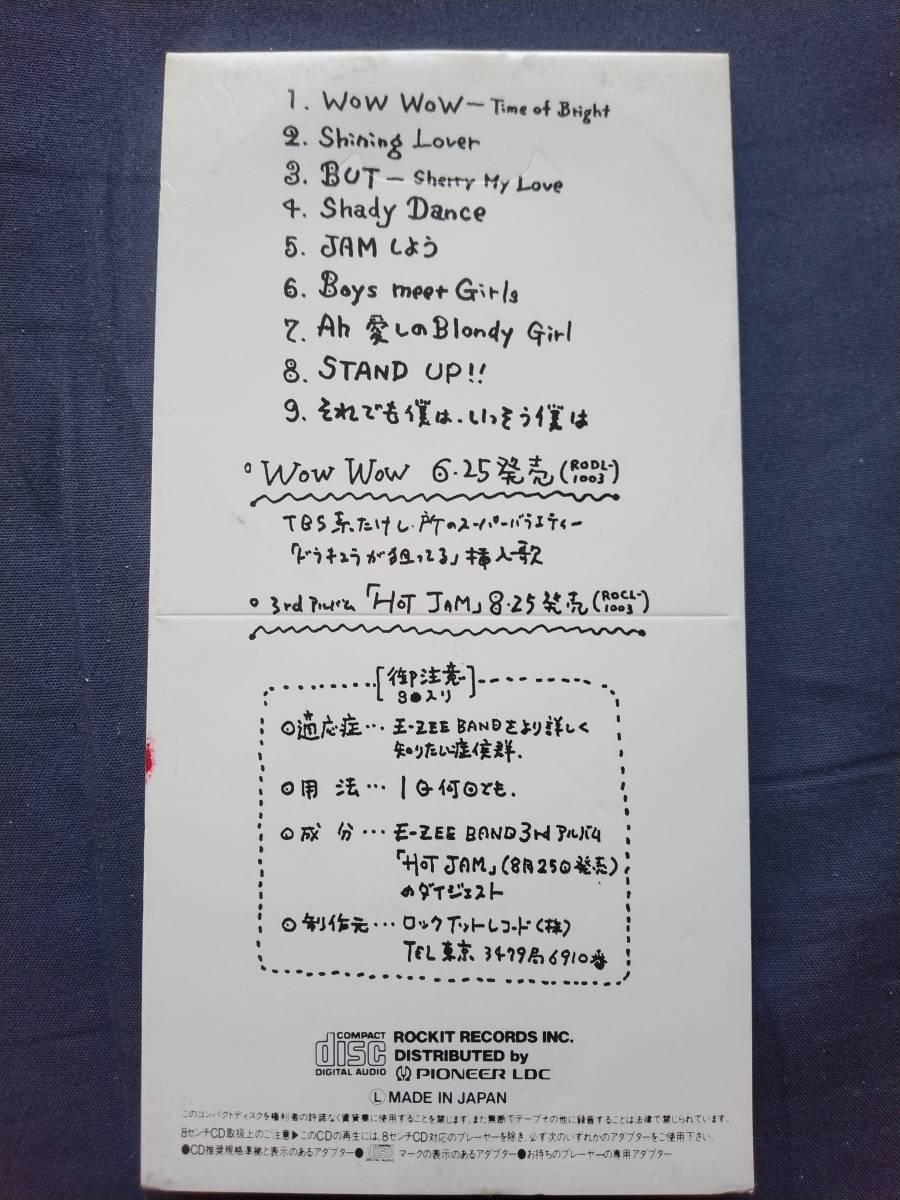 1. WOW WOW – Time of Bright
2. Shining Lover
3. BUT – Sherry My Love
4. Shady Dance
5. JAM しよう
6. Boys meet Girls
7. Ah 愛しのBlondy Girl
8. STAND UP!!
9. それでも僕は、いっそう僕は
○ WOW WOW 6・25発売(RODL-1003)
TBS系たけし・所のスーパーバラエティー
「ドラキュラが狙ってる」挿入歌
○ 3rdアルバム「HOT JAM」8・25発売(ROCL-1003)
[御注意]
◎適応症… E-ZEE BANDをより詳しく
知りたい症候群.
◎用 法… 1日何回でも.
◎成 分… E-ZEE BAND 3rdアルバム
「HOT JAM」(8月25日発売)
のダイジェスト
◎制作元… ロックイットレコード(株)
TEL東京 3479局6910番
COMPACT disc DIGITAL AUDIO
ROCKIT RECORDS INC.
DISTRIBUTED by
PIONEER LDC
Ⓛ MADE IN JAPAN
このコンパクトディスクを権利者の許諾なく賃貸業に使用することを禁じます。また無断でテープその他に録音することは法律で禁じられています。
8センチCD取扱上のご注意▶このCDの再生には、8センチCD対応のプレーヤーを除き、必ず次のいずれかのアダプターをご使用下さい。
●CD推奨規格準拠と表示のあるアダプター● disc マークの表示のあるアダプター●お持ちのプレーヤーの専用アダプター